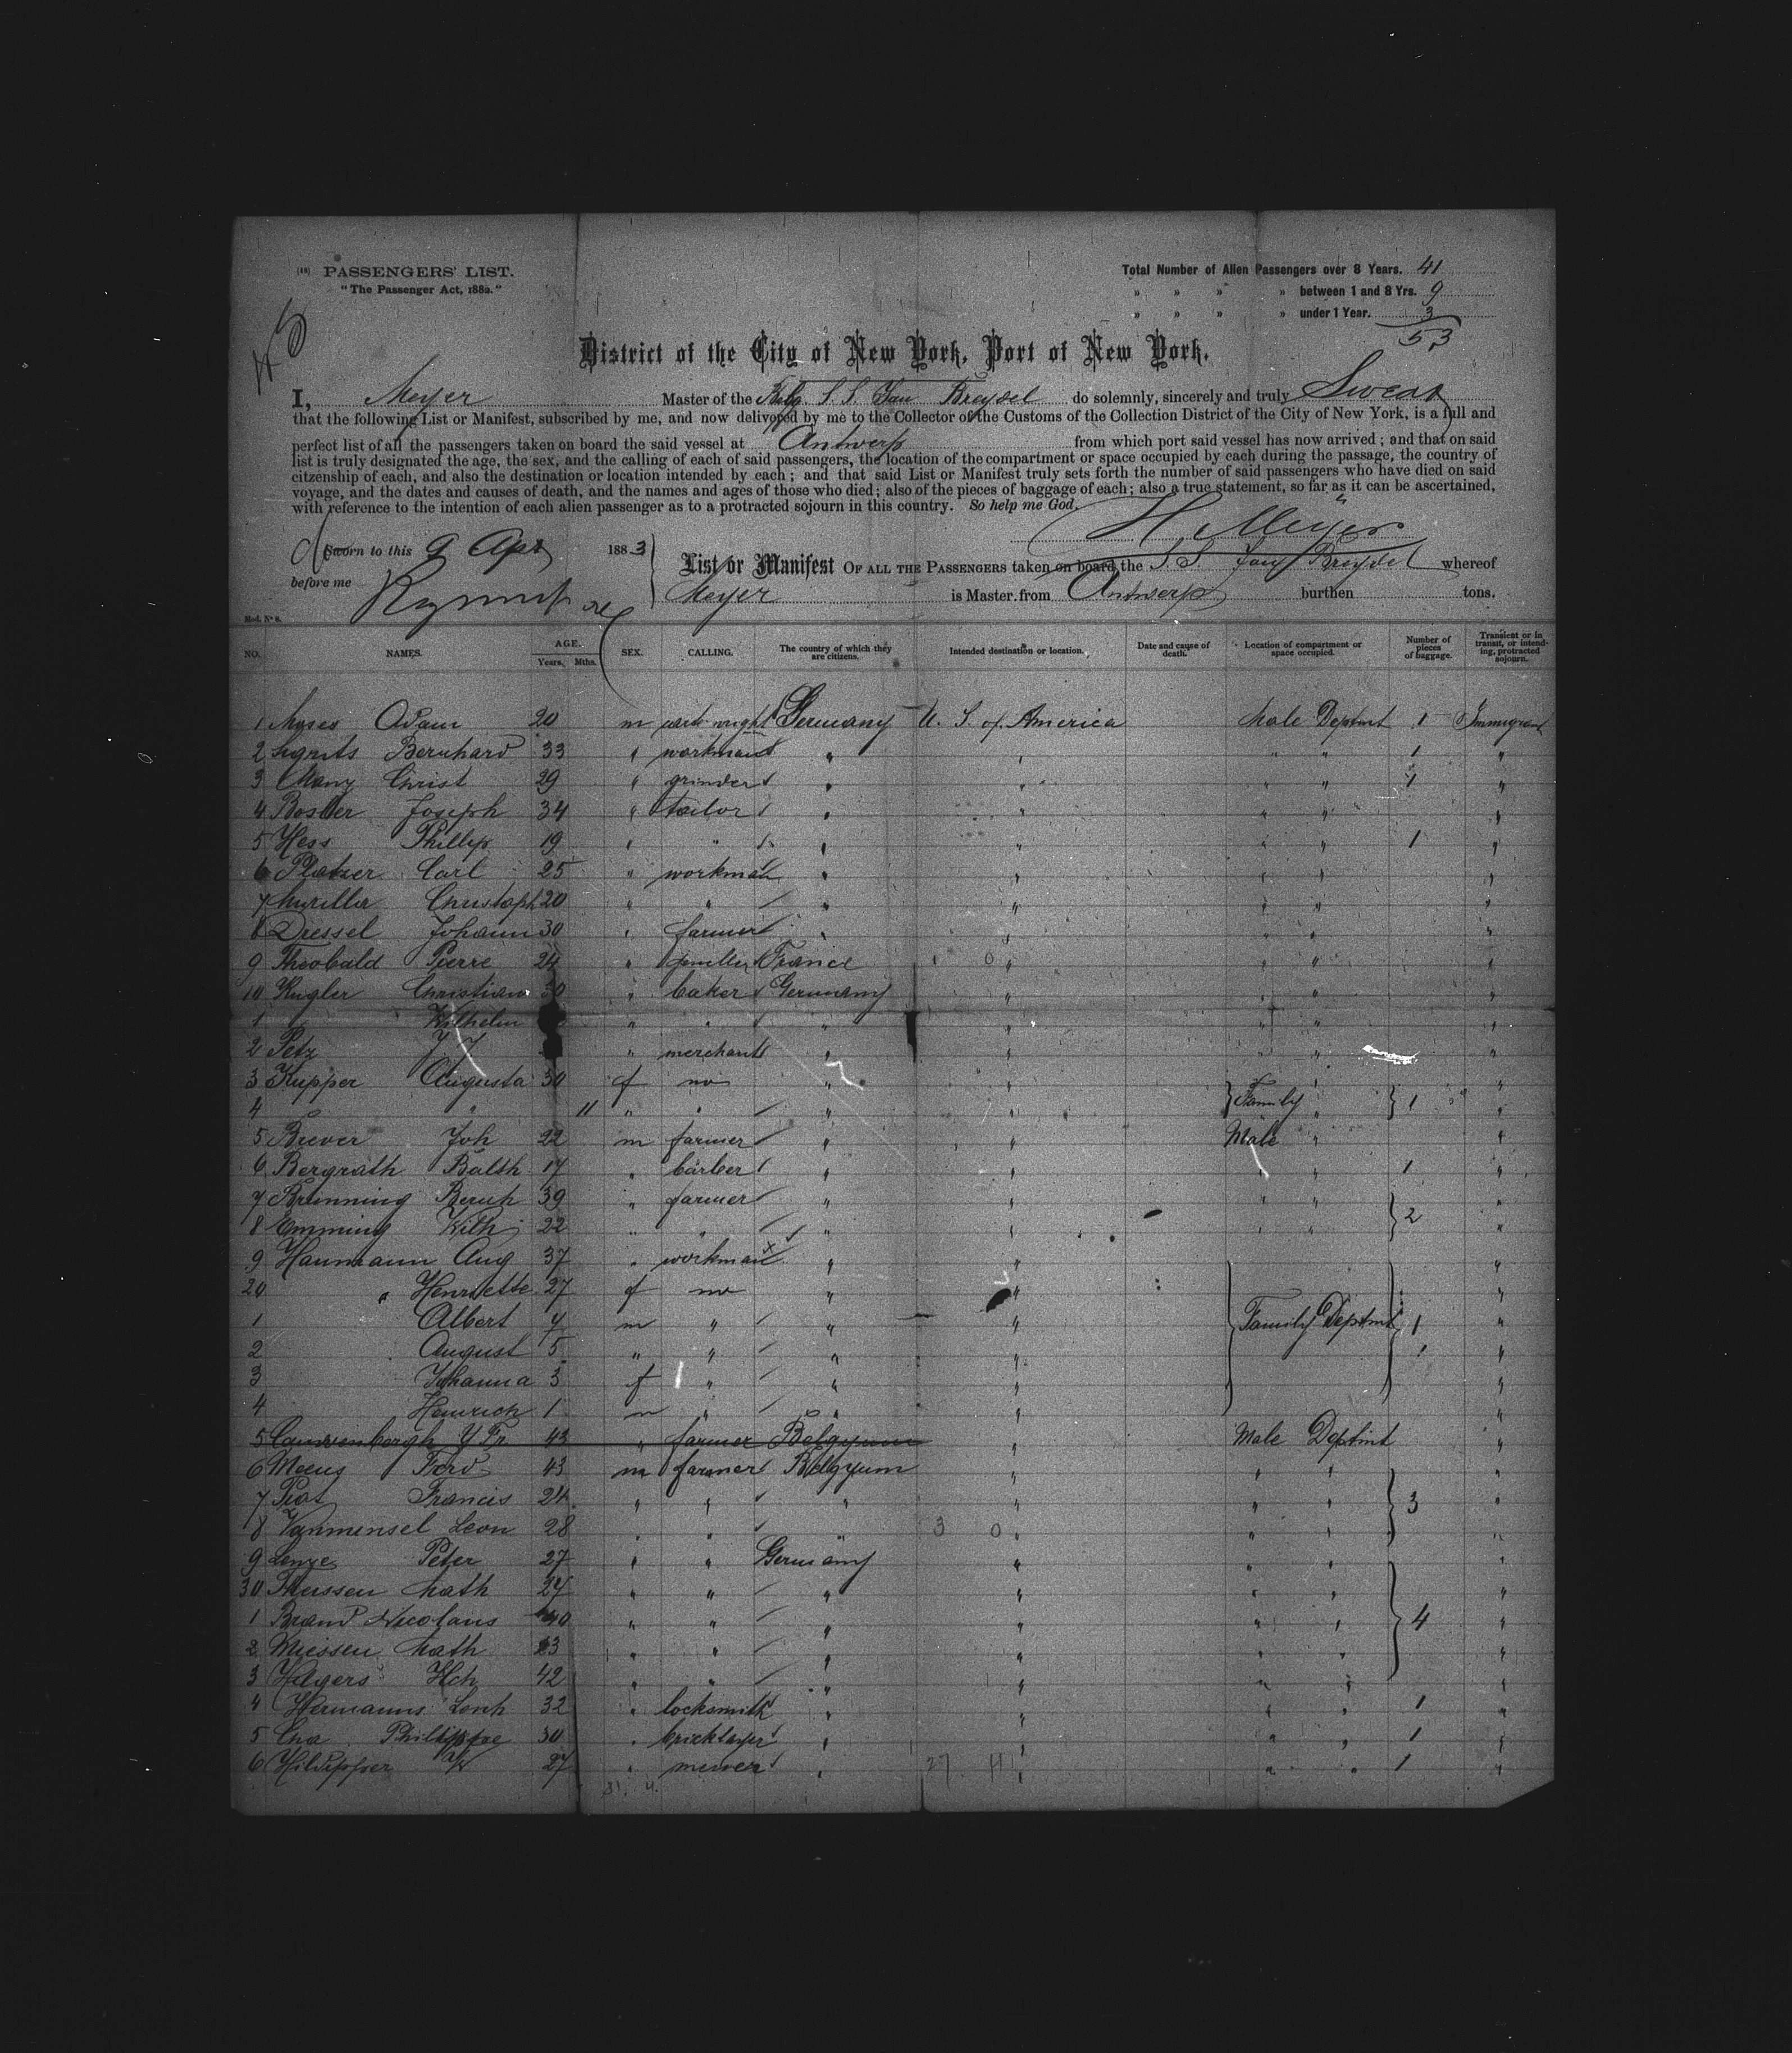 (18) PASSENGERS' LIST.
"The Passenger Act, 1882."
Total Number of Alien Passengers over 8 Years. 41
" " " " between 1 and 8 Yrs. 9
" " " " under 1 Year. 3
53
District of the City of New York, Port of New York.
I, Meyer Master of the S. S. Jan Breydel do solemnly, sincerely and truly Swear
that the following List or Manifest, subscribed by me, and now delivered by me to the Collector of the Customs of the Collection District of the City of New York, is a full and
perfect list of all the passengers taken on board the said vessel at Antwerp from which port said vessel has now arrived; and that on said
list is truly designated the age, the sex, and the calling of each of said passengers, the location of the compartment or space occupied by each during the passage, the country of
citzenship of each, and also the destination or location intended by each; and that said List or Manifest truly sets forth the number of said passengers who have died on said
voyage, and the dates and causes of death, and the names and ages of those who died; also of the pieces of baggage of each; also a true statement, so far as it can be ascertained,
with reference to the intention of each alien passenger as to a protracted sojourn in this country. So help me God.
H Meyer
Sworn to this 9 Apr 1883
before me
List or Manifest OF ALL THE PASSENGERS taken on board the S. S. Jan Breydel whereof
Meyer is Master, from Antwerp burthen tons.
Mod. No 8.
NO. NAMES. AGE. Years. Mths. SEX. CALLING. The country of which they are citizens. Intended destination or location. Date and cause of death. Location of compartment or space occupied. Number of pieces of baggage. Transient or in transit, or intending, protracted sojourn.
1 Moses Adam 20 m Germany U. S. of America Male Deptmt 1 Immigrant
2 Bernhard 33 " workman " " " " 1 "
3 Christ 29 " grinder " " " " 1 "
4 Joseph 34 " tailor " " " " "
5 Hess Phillip 19 " " " " " " 1 "
6 Platzer Carl 25 " workman " " " " "
7 Christoph 20 " " " " " " "
8 Dressel Johann 30 " farmer " " " " "
9 Theobald Pierre 24 " France " " " "
10 Kugler Christian 30 " baker Germany " " " "
1 Wilhelm " " " " " " "
2 Petz " merchant " " " " "
3 Kupper Augusta 30 f no " " Family " 1 "
4 " 11 " " " " "
5 Brever Joh 22 m farmer " " Male " "
6 Bergrath Balth 17 " barber " " " " 1 "
7 Brunning Bernh 39 " farmer " " " " 2 "
8 Emming Wilh 22 " " " " " " "
9 Haumann Aug 37 " workman " " "
20 " Henriette 27 f no " " "
1 Albert 7 m " " " Family Deptmt 1 "
2 August 5 " " " " 1 "
3 Johanna 3 f " " " "
4 Heinrich 1 m " " " "
5 43 " farmer Belgyum " Male Deptmt
6 Moeus Ferd 43 m farmer Belgyum " " " "
7 Francis 24 " " " " " 3 "
8 Vanmensel Leon 28 " " " " " " "
9 Peter 27 " " Germany " " " "
30 Theissen Math 27 " " " " " " "
1 Brand Nicolaus 40 " " " " " " 4 "
2 Miessen Math 23 " " " " " " "
3 Hilgers Hch 42 " " " " " " "
4 Hermanns 32 " locksmith " " " " 1 "
5 Philippe 30 " bricklayer " " " " 1 "
6 27 " " " " " 1 "